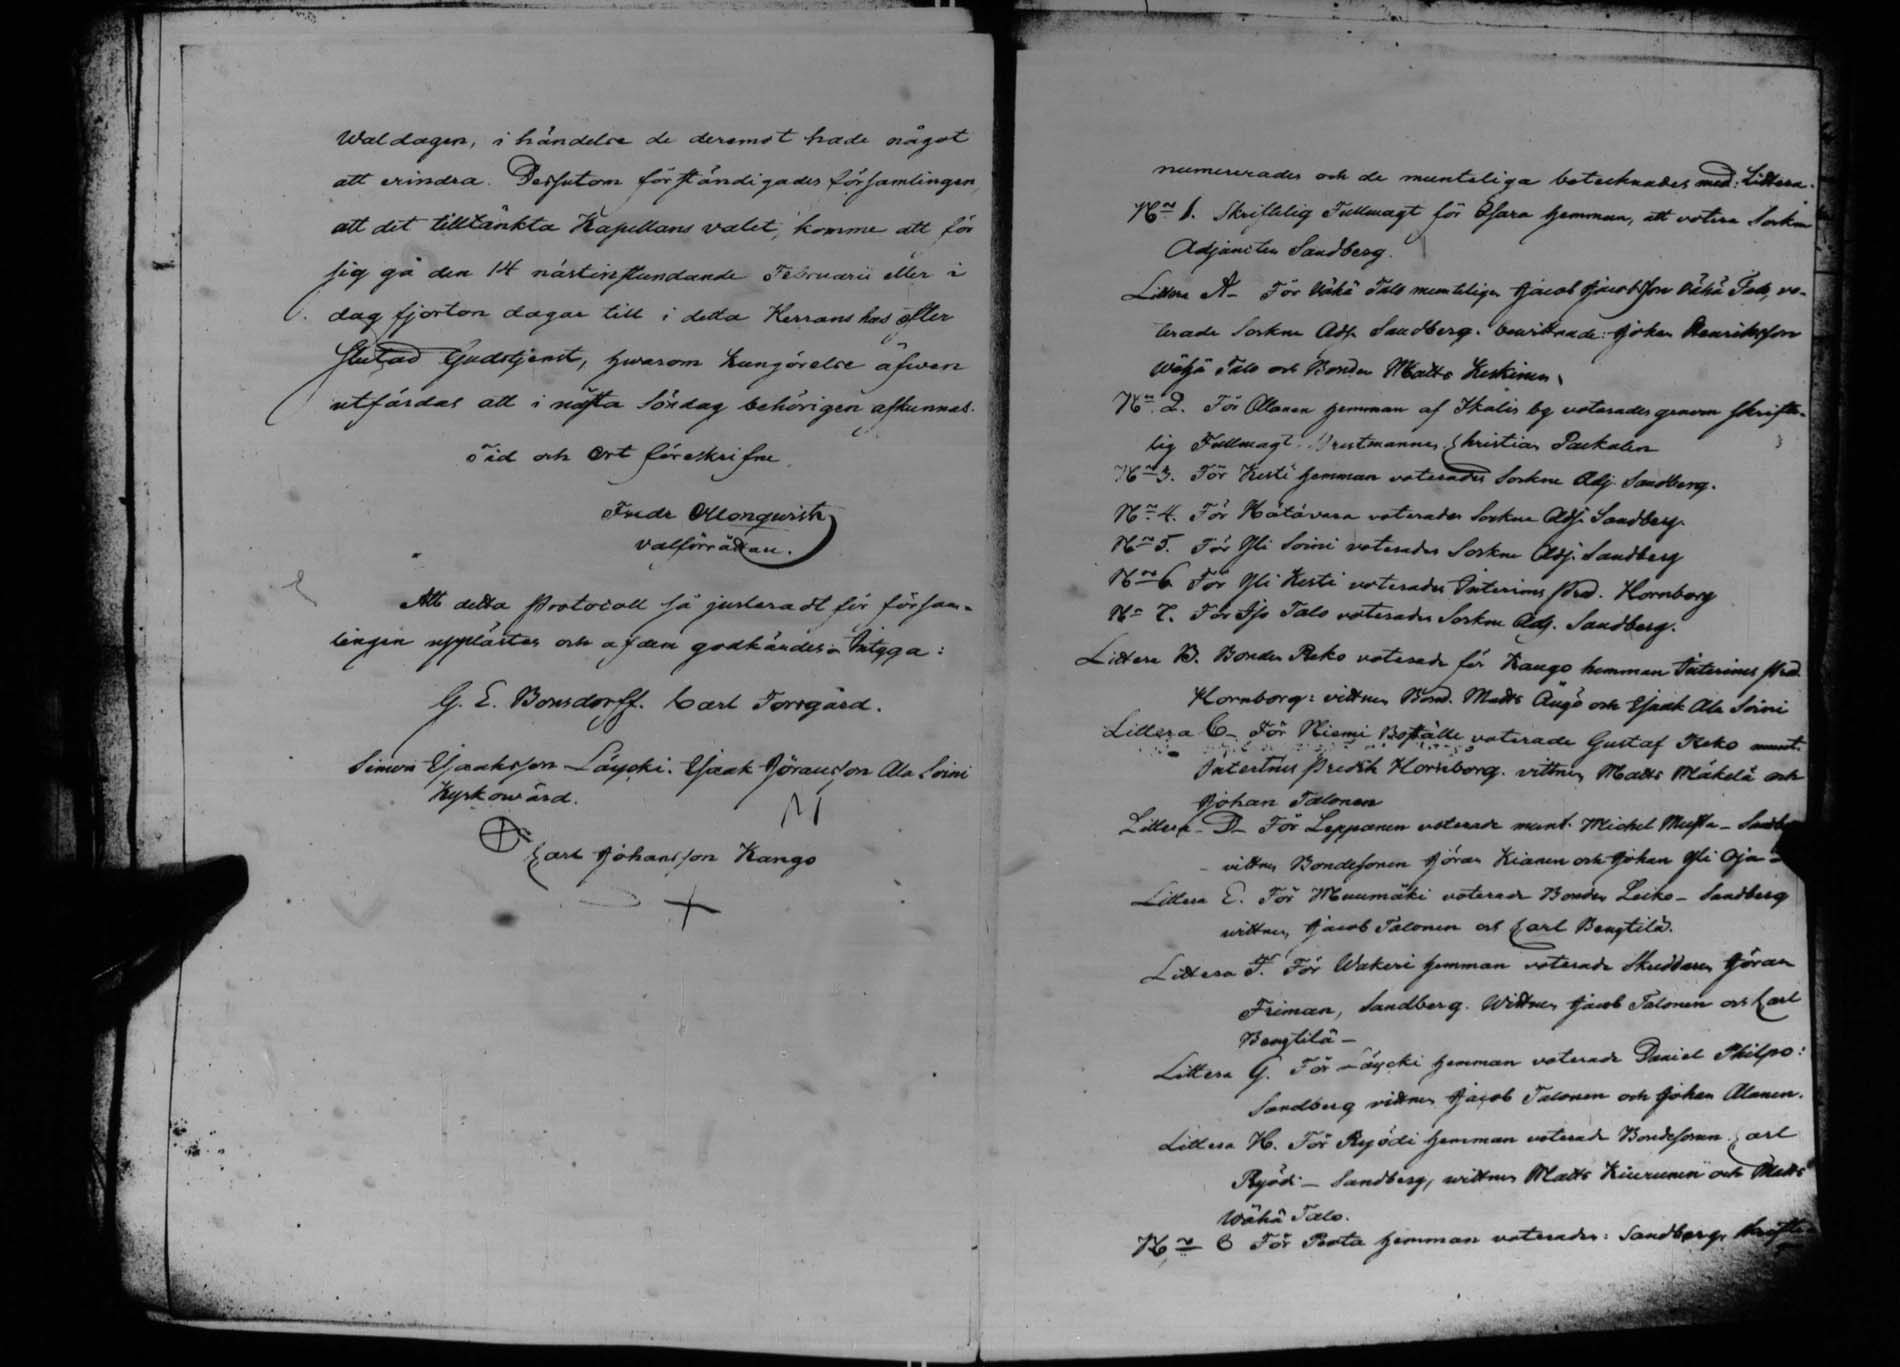 Waldagen, i händelse de deremot hade något
att erindra. Dessutom förständigades församlingen,
att det tilltänkta Kapellans valet, komme att för
sig gå den 14 nästinstundande Februarii eller i
dag fjorton dagar till i detta Herrans hus efter
slutad Gudstjenst, hwarom Kungörelse äfwen
utfärdas att i nästa Söndag behörigen afkunnas.
Tid och Ort föreskrifne.
valförrättare.
Att detta Protocoll så justeradt för försam-
lingen upplästes och af den godkändes Intyga:
G. E. Bonsdorff. Carl Torrgård.
Simon Esaaksson Läycki. Esaak Göransson Ala Soini
Kyrkowärd.
Carl Johansson Kango
numererades och de munteliga betecknades med: Littera.
No 1. Skriftelig Fullmagt för hemman, att votera Sockne
Adjuncten Sandberg.
Littera A- För Vähä Talo munteligen Jacob Jacobsson Vähä Talo, vo-
terade Sockne Adj. Sandberg. bewittnade: Johan Henriksson
Wähä Talo och Bonden Matts Keskinen.
No 2. För Ollonen hemman af Ikalis by voterades genom skrifte-
lig Fullmagt. Christian
No 3. För Kesti hemman voterades Sockne Adj. Sandberg.
No 4. För Hätävara voterades Sockne Adj. Sandberg.
No 5. För Yli Soini voterades Sockne Adj. Sandberg
No 6. För Yli Kesti voterades Interims Pred. Hornborg
No 7. För Iso Talo voterades Sockne Adj. Sandberg.
Littera B. Bonden Reko voterade för Kango hemman Interims Pred.
Hornborg: vittnen Bond. Matts Äugö och Esaak Ala Soini
Littera C- För Niemi Boställe voterade Gustaf Keko munt.
Interims Predik Hornborg. vittnen Matts Mäkelä och
Johan Talonen
Littera- D- För Leppänen voterade munt. Michel Musta-
- vittnen Bondesonen Göran Kianen och Johan Yli Oja-
Littera E. För Muumäki voterade Bonden Leiko- Sandberg
wittnen Jacob Talonen och Carl Bengtilä.
Littera F. För Wakeri hemman voterade Skräddaren Göran
Friman, Sandberg. Wittnen Jacob Talonen och Carl
Bengtilä-
Littera G. För Läycki hemman voterade Daniel Philpo:
Sandberg vittnen Jacob Talonen och Johan Alanen.
Littera H. För Ryödi hemman voterade Bondesonen Carl
Ryödi- Sandberg, wittnen Matts Kiurunen och Matts
Wähä Talo.
No 8 För Penta hemman voterades: Sandberg,